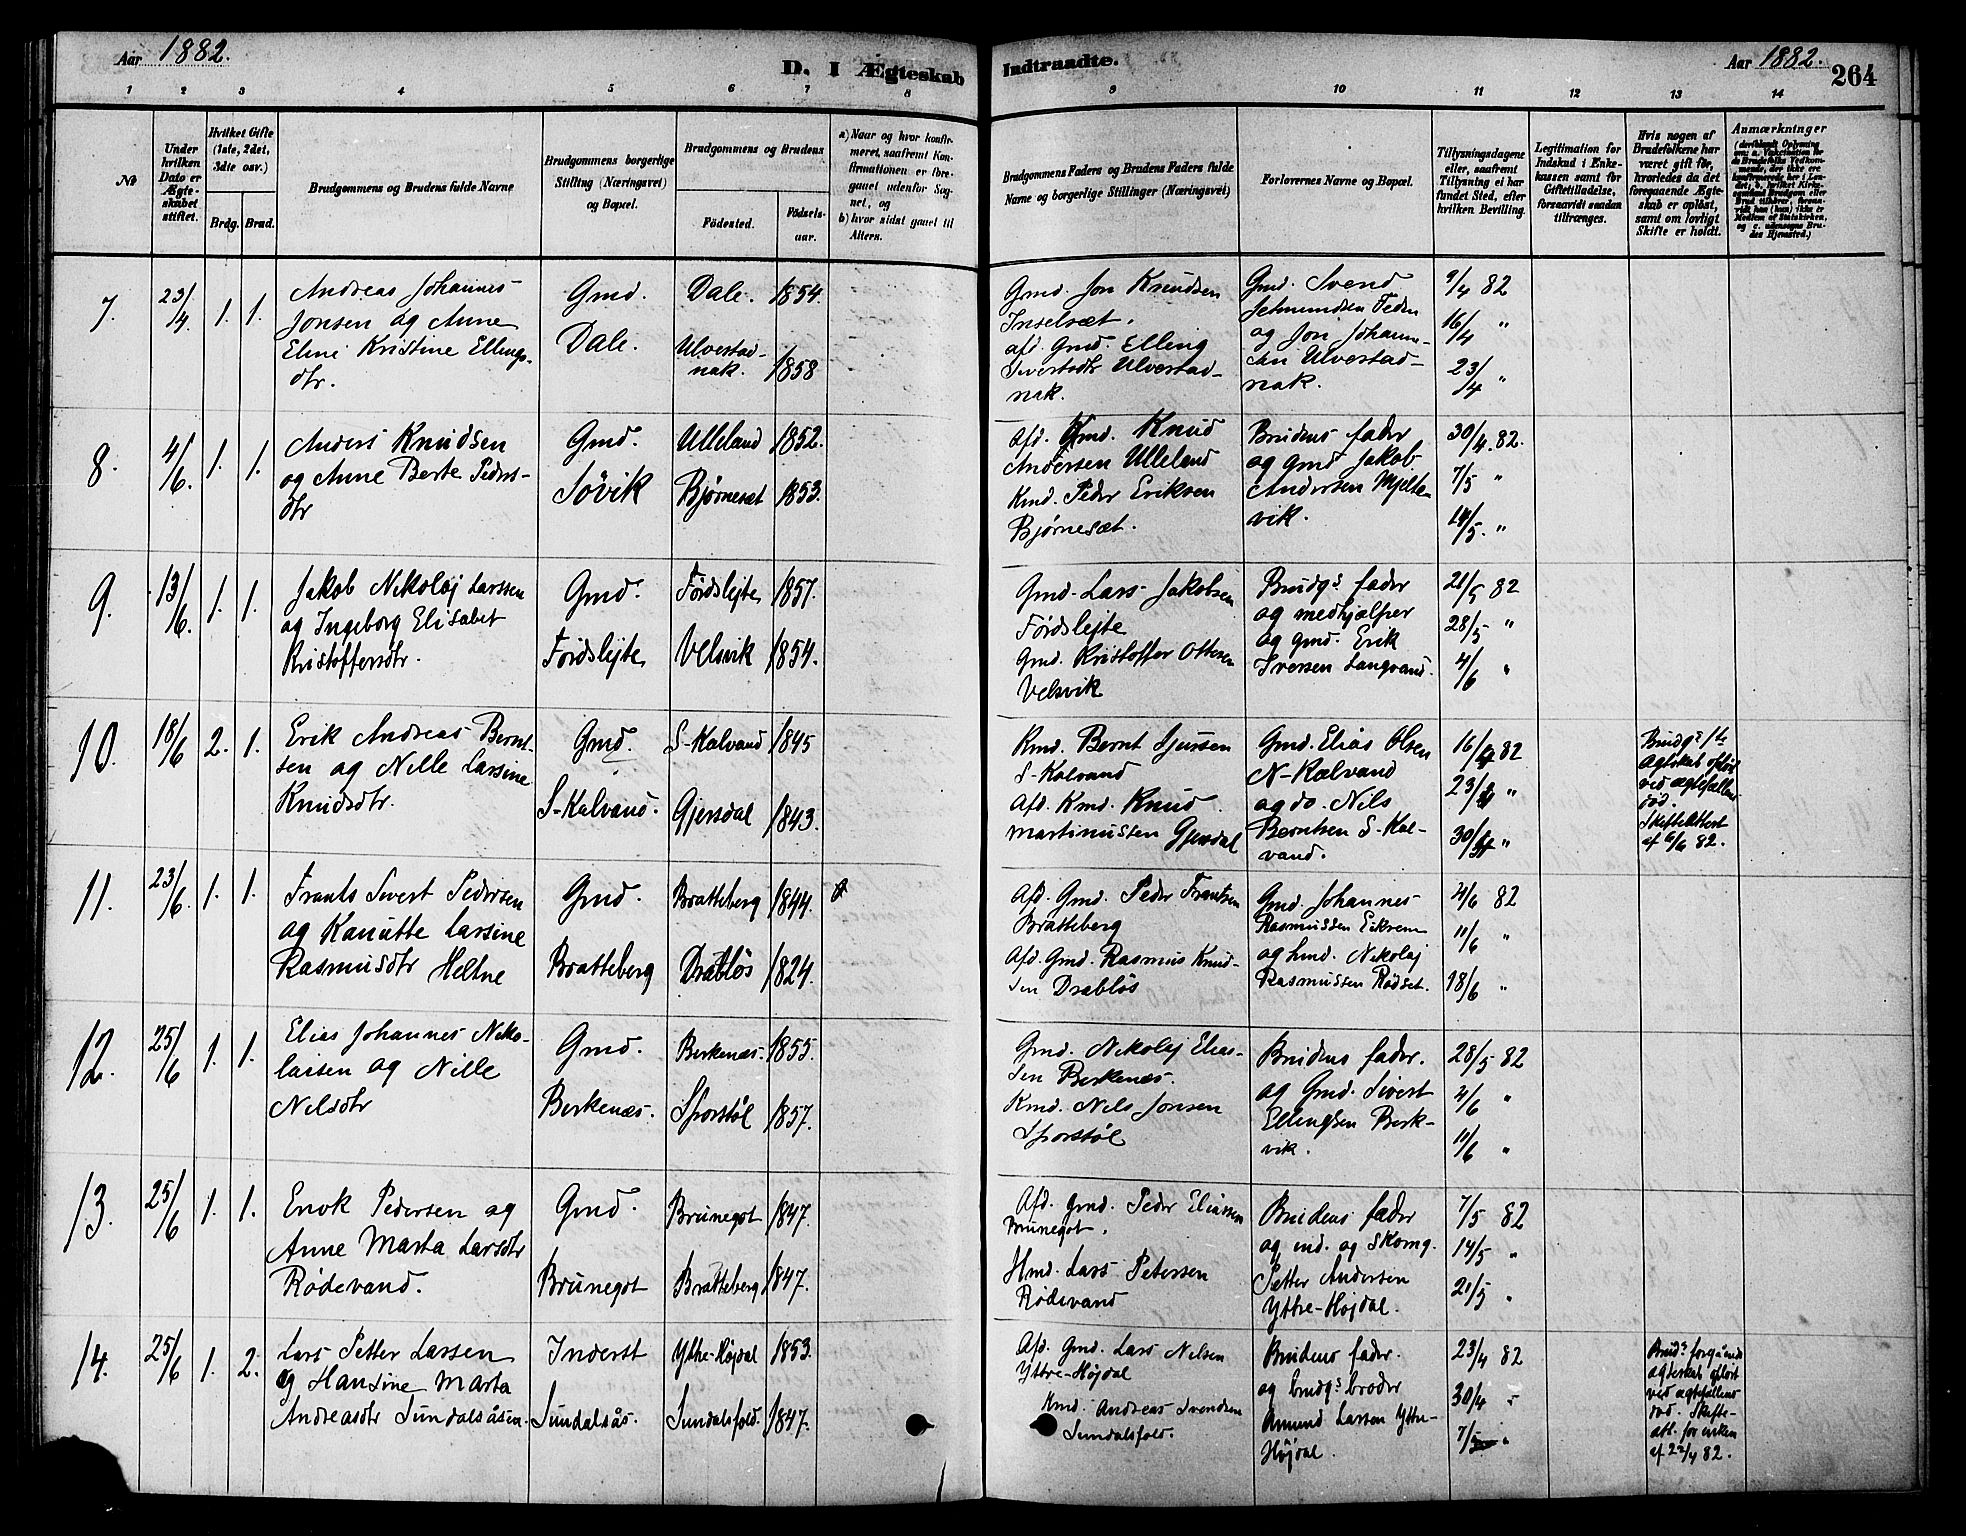 Aar 1882.
D. I Ægteskab
Indtraadte.
Aar 1882.
264
1 2 3 4 5 6 7 8 9 10 11 12 13 14
No
Under hvilken Dato er Ægteskabet stiftet.
Hvilket Gifte (1ste, 2det, 3die osv.)
Brdg. Brud.
Brudgommens og Brudens fulde Navne
Brudgommens borgerlige Stilling (Næringsvei) og Bopæl.
Brudgommens og Brudens
Födested.
Födselsaar.
a) Naar og hvor konfirmeret, saafremt Konfirmationen er foregaaet udenfor Sognet, og
b) hvor sidst gaaet til Alters.
Brudgommens Faders og Brudens Faders fulde Navne og borgerlige Stillinger (Næringsvei)
Forlovernes Navne og Bopæl.
Tillysningsdagene eller, saafremt Tillysning ei har fundet Sted, efter hvilken Bevilling.
Legitimation for Indskud i Enkekassen samt for Giftetilladelse, forsaavidt saadan tiltrænges.
Hvis nogen af Brudefolkene har været gift för, hvorledes da det foregaaende Ægteskab er oplöst, samt om lovligt Skifte er holdt.
Anmærkninger
7. 23/4 1. 1.
Andreas Johannes
Jonsen og Anne
Eline Kristine Ellings-
dtr.
Gmd.
Dale.
Dale. 1854.
Ulvestad-
nak. 1858
Gmd. Jon Knudsen
Inselsæt.
afd. Gmd. Elling
Sivertsdtr Ulvestad-
nak.
Gmd. Svend
Jetmundsen Feden
og Jon Johann-
sen Ulvestad-
nak.
9/4 82
16/4 "
23/4 "
8. 4/6 1. 1.
Anders Knudsen
og Anne Berte Peders-
dtr
Gmd.
Søvik
Ulleland 1852.
Bjørnesæt 1853.
Afd. Gmd. Knud
Andersen Ulleland
Kmd. Peder Eriksen
Bjørnesæt.
Brudens fader
og gmd Jakob
Andersen Mjelte-
vik.
30/4. 82.
7/5 "
14/5. "
9. 13/6. 1. 1.
Jakob Nikolaj Larssen
og Ingeborg Elisabet
Kristoffersdtr.
Gmd.
Førdslejte
Førdslejte 1857.
Velsvik 1854.
Gmd. Lars Jakobsen
Førdslejte
Gmd. Kristoffer Ottesen
Velsvik
Brudgs fader
og medhjælper
og gmd. Erik
Iversen Langvand.
21/5 82
28/5 "
4/6 "
10. 18/6 2. 1.
Erik Andreas Bernt-
sen og Nille Larsine
Knudsdtr.
Gmd.
S-Kalvand.
S-Kalvand 1845
Gjersdal 1843.
Kmd. Bernt Sjursen
S-Kalvand
Afd. Kmd. Knud
Martinussen Gjersdal
Gmd. Elias Olsen
N-Kalvand
og do. Nils
Berntsen S-Kal-
vand.
16/4 82
23/4 "
30/4 "
Brudgs 1te
Ægteskab opløst
ved ægtefællens
død.
Skifteattest
af 6/6 82.
11. 23/6. 1. 1.
Frants Sivert Pedersen
og Kanutte Larsine
Rasmusdtr Heltne
Gmd.
Bratteberg
Bratteberg 1844.
Drabløs 1824.
Afd. Gmd. Peder Frantsen
Bratteberg
Afd. Gmd. Rasmus Knud-
sen Drabløs
Gmd. Johannes
Rasmussen Eikrem
og hmd. Nikolaj
Rasmussen Rødset.
4/6 82
11/6 "
18/6 "
12. 25/6 1. 1.
Elias Johannes Niko-
laisen og Nille
Nilsdtr
Gmd.
Berkenæs.
Berkenæs. 1855.
Sporstøl 1857.
Gmd. Nikolaj Elias-
sen Berkenæs.
Kmd. Nils Jonsen
Sporstøl
Brudens fader.
og Gmd. Sivert
Ellingsen Berk-
vik.
28/5 82
4/6 "
11/6 "
13. 25/6 1. 1.
Enok Pedersen og
Anne Marta Larsdtr
Rødevand.
Gmd.
Brunegot
Brunegot 1847.
Bratteberg 1847.
Afd. Gmd. Peder Eliassen
Brunegot.
Hmd. Lars Petersen
Rødevand
Brudens fader
og ind. og Skomg.
Petter Andersen
Yttre-Højdal.
7/5 82
14/5 "
21/5 "
14. 25/6 1. 2.
Lars Petter Larsen
og Hansine Marta
Andreasdtr Sundalsåsen.
Inderst
Sundalsås.
Ythe-Højdal 1853.
Sundalsfold. 1847.
Afd. Gmd. Lars Nilsen
Yttre-Højdal
Kmd. Andreas Svendsen
Sundalsfold.
Brudens fader.
og brudgs broder
Amund Larsen Yttre-
Højdal.
23/4 82
30/4 "
7/5 "
Bruds foregående
ægteskab opløst
ved ægtefællens
død. Skifte-
att. for enken
af 22/4 82.